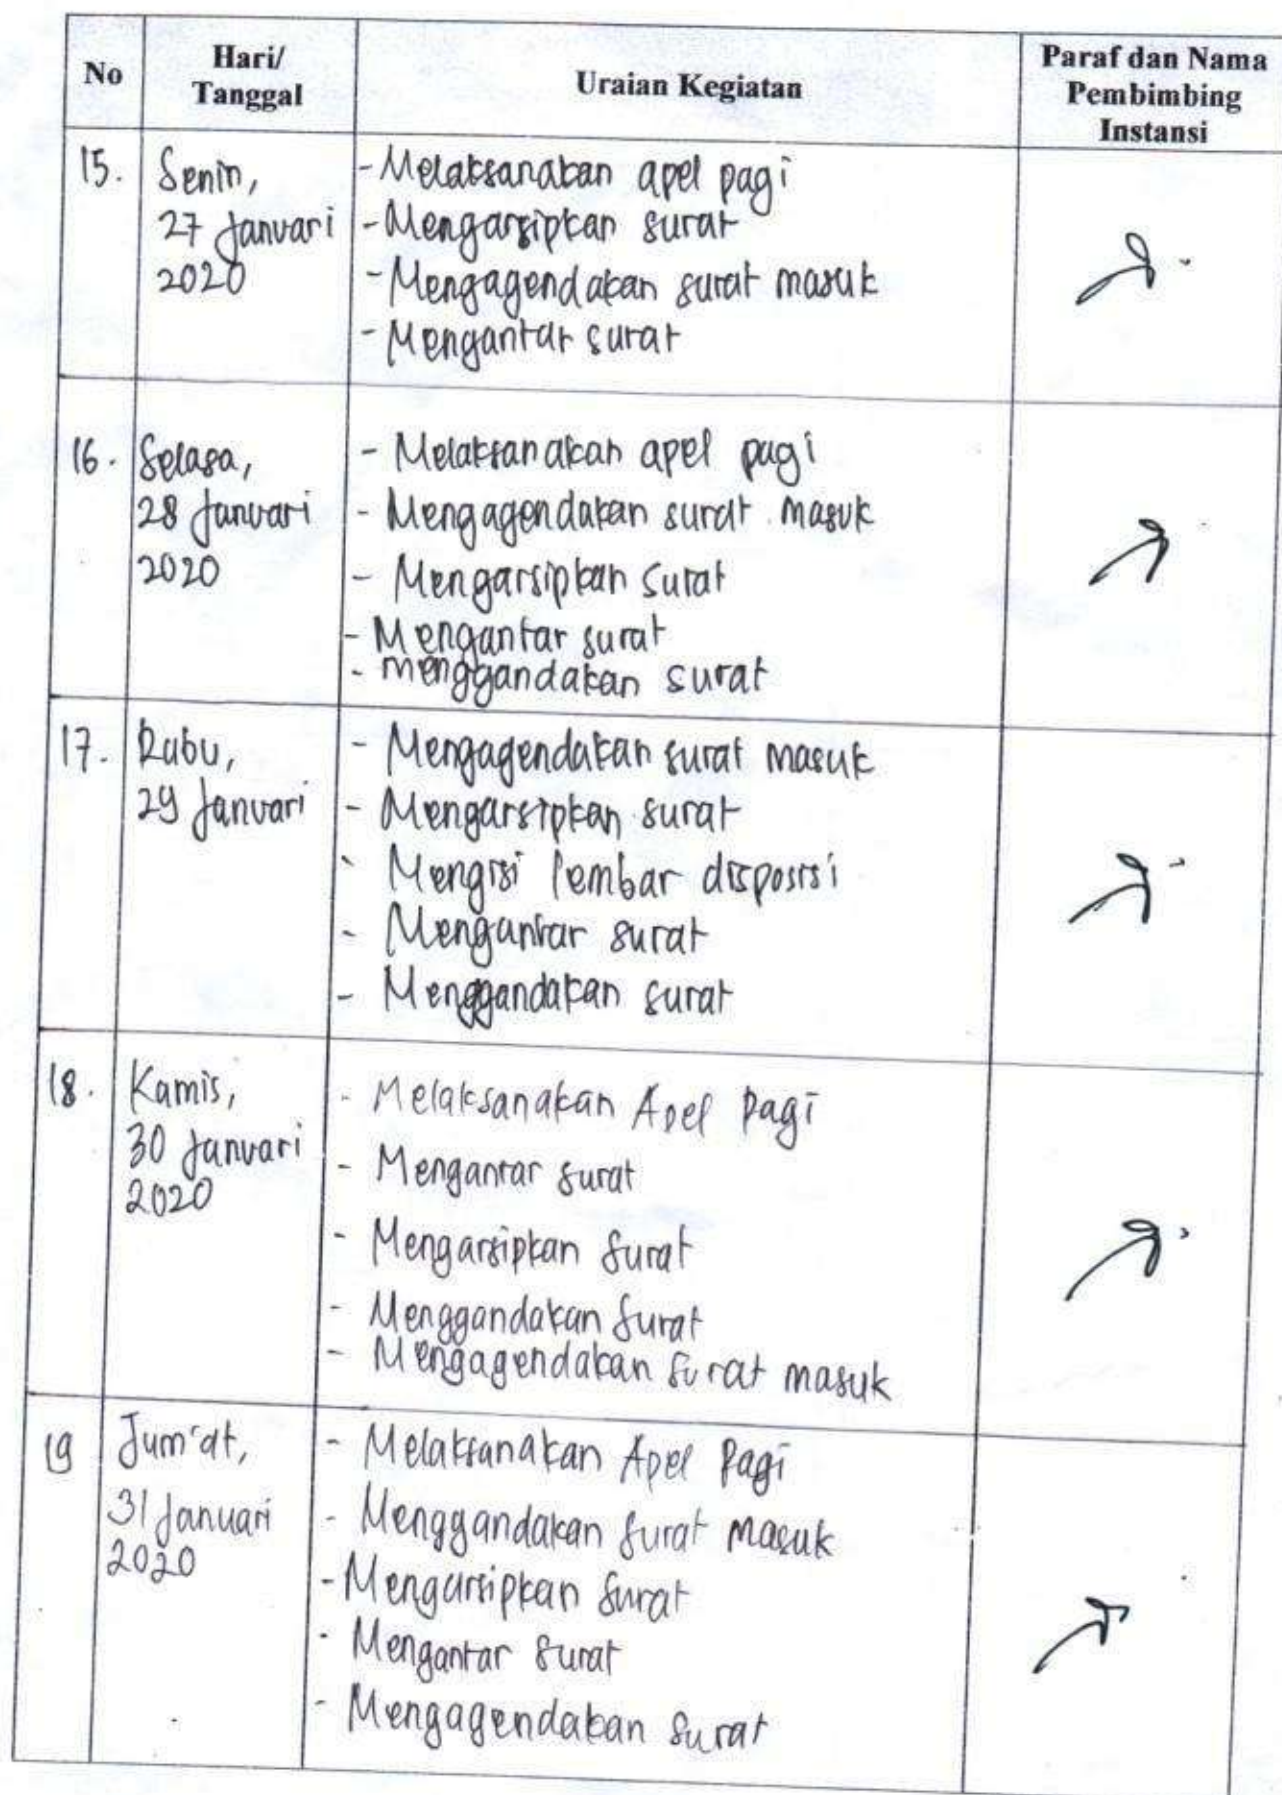 No
Hari/
Tanggal
Uraian Kegiatan
Paraf dan Nama
Pembimbing
Instansi
15.
Senin,
27 Januari
2020
- Melaksanakan apel pagi
- Mengarsipkan surat
- Mengagendakan surat masuk
- Mengantar surat
16.
Selasa,
28 Januari
2020
- Melaksanakan apel pagi
- Mengagendakan surat masuk
- Mengarsipkan surat
- Mengantar surat
- menggandakan surat
17.
Rabu,
29 Januari
- Mengagendakan surat masuk
- Mengarsipkan surat
- Mengisi lembar disposisi
- Mengantar surat
- Menggandakan surat
18.
Kamis,
30 Januari
2020
- Melaksanakan Apel Pagi
- Mengantar surat
- Mengarsipkan surat
- Menggandakan surat
- Mengagendakan surat masuk
19
Jum'at,
31 Januari
2020
- Melaksanakan Apel Pagi
- Menggandakan surat masuk
- Mengarsipkan surat
- Mengantar surat
- Mengagendakan surat